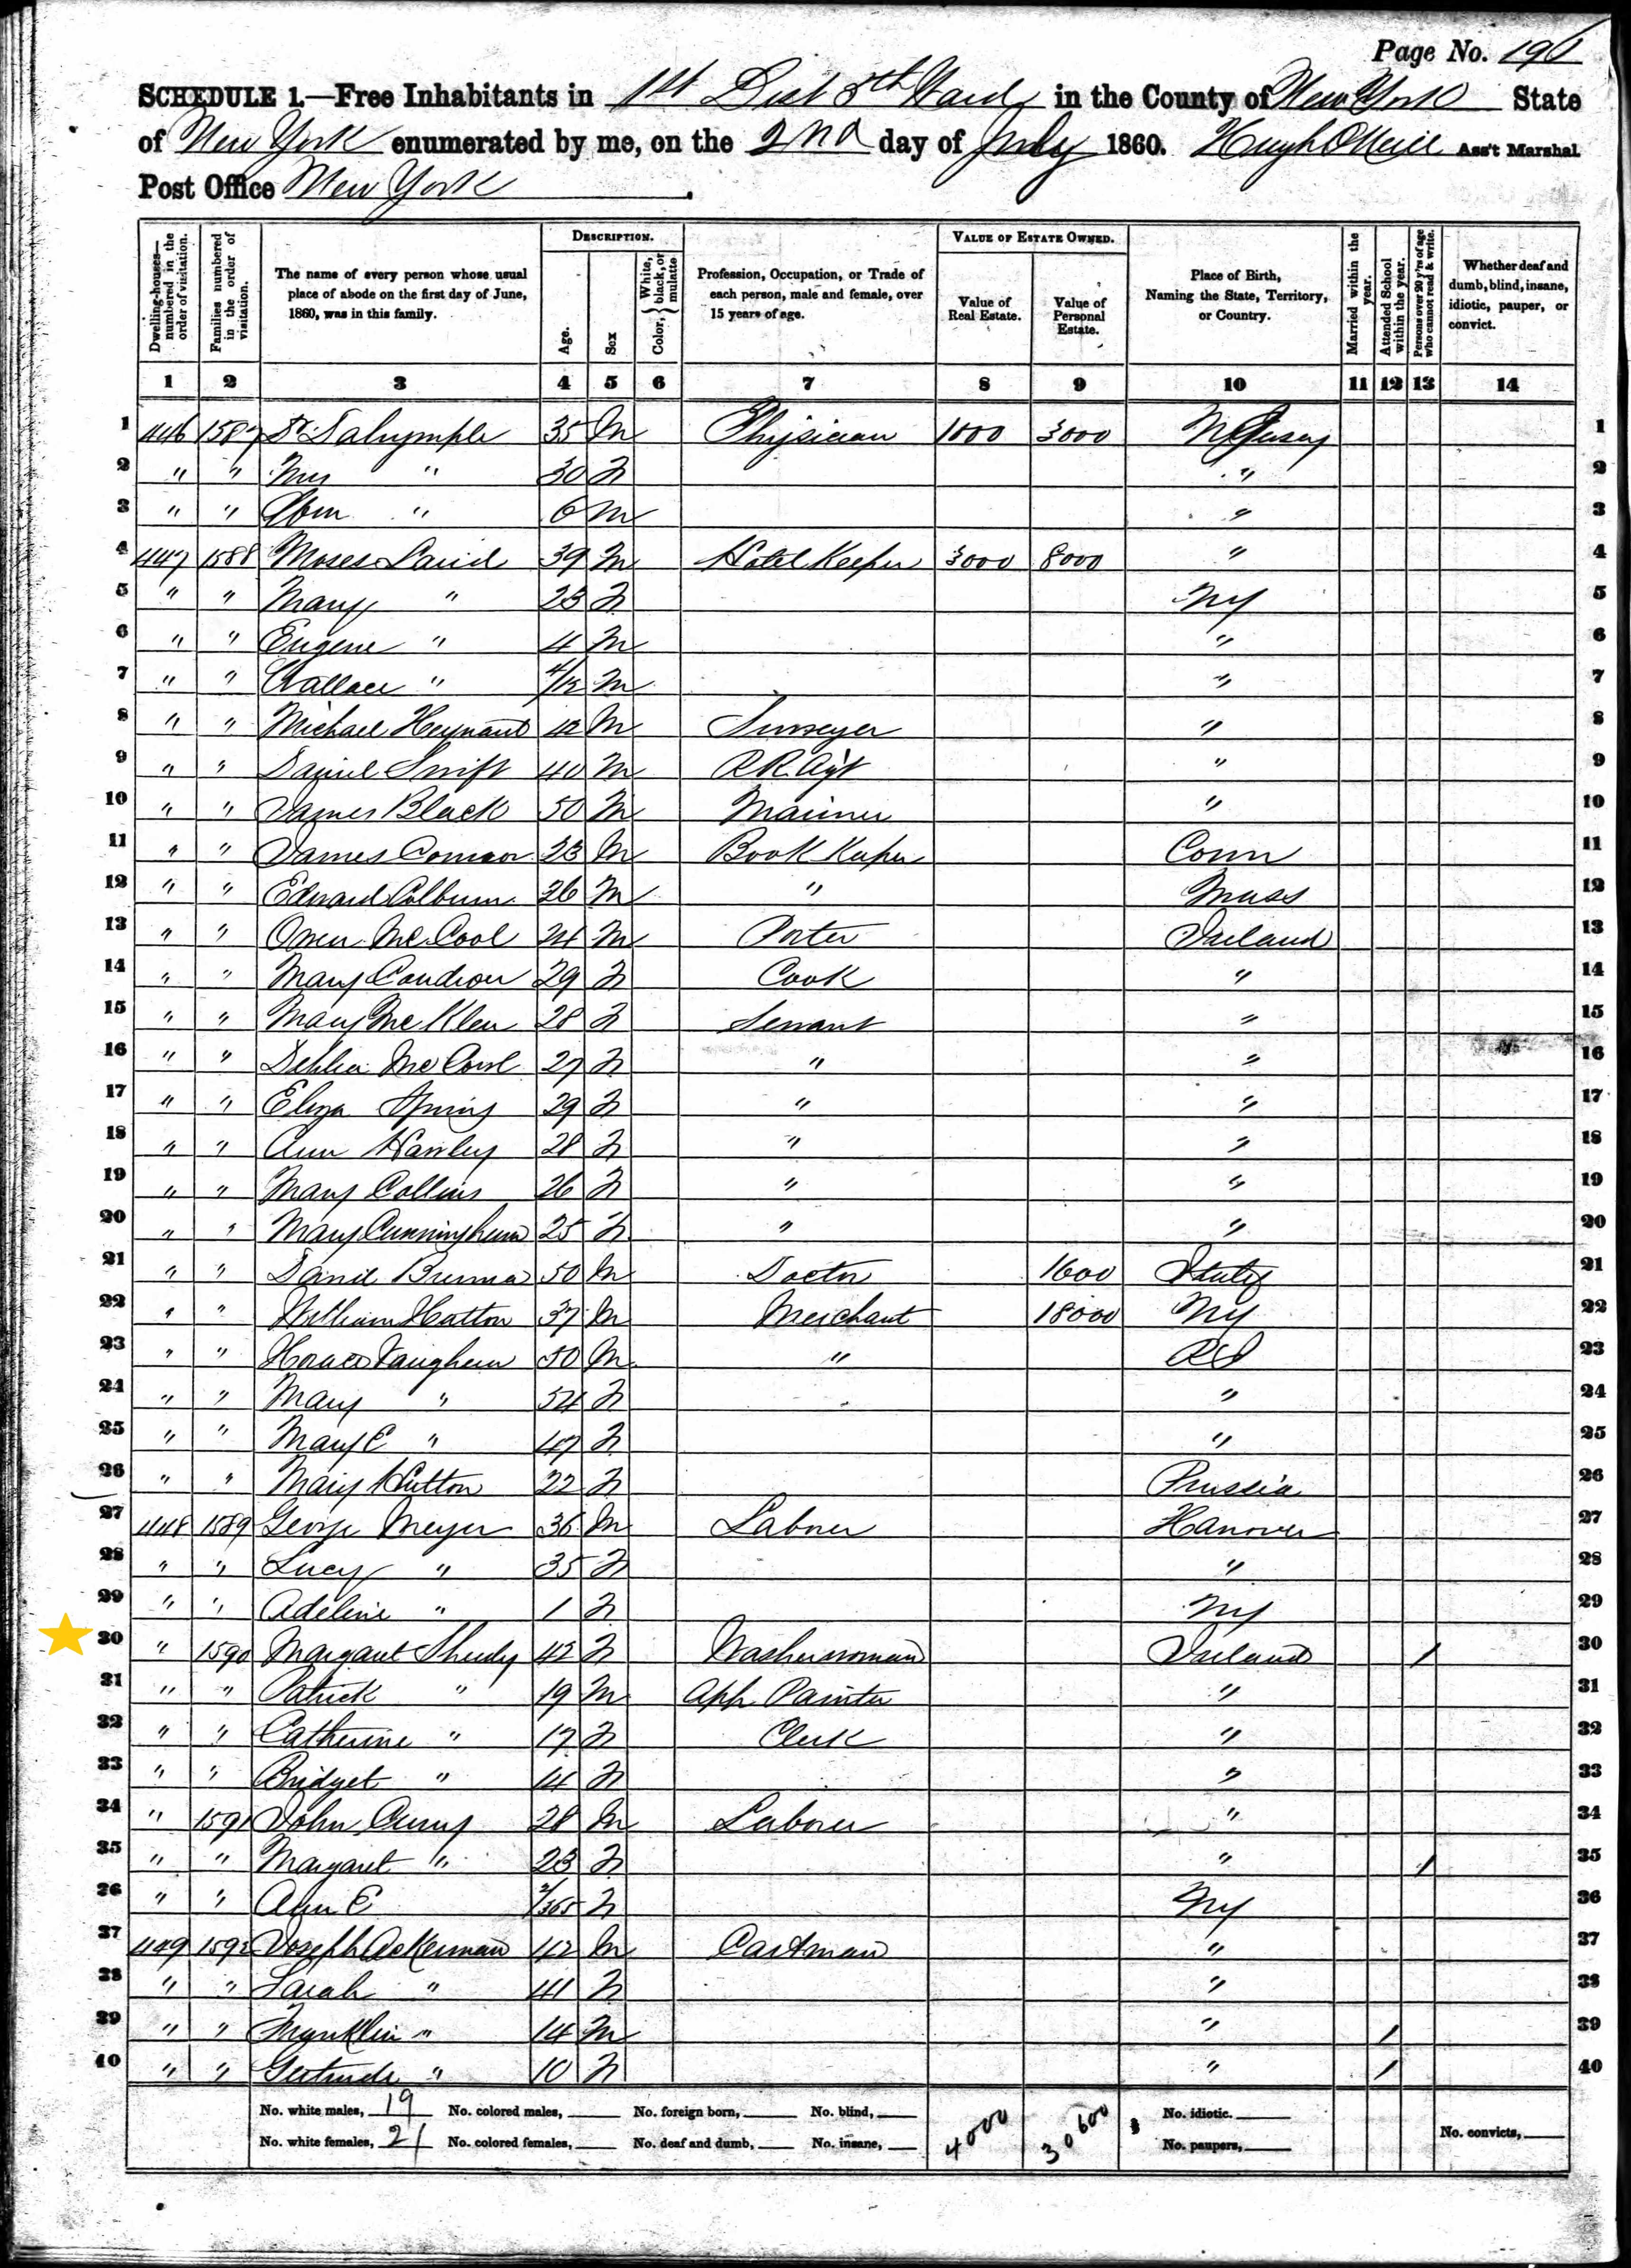 Page No. 196
SCHEDULE 1.—Free Inhabitants in 1st Dist 5th Ward in the County of New York State
of New York enumerated by me, on the 2nd day of July 1860. Hugh O Neill Ass't Marshal
Post Office New York.
Dwelling-houses—numbered in the order of visitation.
Families numbered in the order of visitation.
The name of every person whose usual place of abode on the first day of June, 1860, was in this family.
DESCRIPTION.
Age.
Sex
Color, White, black, or mulatto
Profession, Occupation, or Trade of each person, male and female, over 15 years of age.
VALUE OF ESTATE OWNED.
Value of Real Estate.
Value of Personal Estate.
Place of Birth, Naming the State, Territory, or Country.
Married within the year.
Attended School within the year.
Persons over 20 y'rs of age who cannot read & write.
Whether deaf and dumb, blind, insane, idiotic, pauper, or convict.
1 2 3 4 5 6 7 8 9 10 11 12 13 14
1 446 1587 Dr Dalrymple 35 M Physician 1000 3000 N Jersey 1
2 " " Mrs " 30 F " 2
3 " " " 6 M " 3
4 447 1588 Moses Laird 39 M Hotel Keeper 3000 8000 " 4
5 " " Mary " 23 F NY 5
6 " " Eugene " 4 M " 6
7 " " Wallace " 4/12 M " 7
8 " " Michael 42 M " 8
9 " " Daniel Swift 40 M RR Agt " 9
10 " " James Black 50 M Mariner " 10
11 " " James 23 M Book Keeper Conn 11
12 " " Edward Colburn 26 M " Mass 12
13 " " Owen McCool 24 M Porter Ireland 13
14 " " Mary Condron 29 F Cook " 14
15 " " Mary 28 F Servant " 15
16 " " 27 F " " 16
17 " " Eliza Spring 29 F " " 17
18 " " Ann Hanley 28 F " " 18
19 " " Mary Collins 26 F " " 19
20 " " Mary Cunningham 25 F " " 20
21 " " 50 M Doctor 1600 Italy 21
22 " " William Hatton 37 M Merchant 18000 NY 22
23 " " Horace Vaughern 50 M " RI 23
24 " " Mary " 54 F " 24
25 " " Mary E " 47 F " 25
26 " " Mary Hutton 22 F Prussia 26
27 448 1589 George Meyer 36 M Laborer Hanover 27
28 " " Lucy " 35 F " 28
29 " " Adeline " 1 F NY 29
30 " 1590 Margaret Sheedy 42 F Washerwoman Ireland / 30
31 " " Patrick " 19 M App Painter " 31
32 " " Catherine " 17 F Clerk " 32
33 " " Bridget " 14 F " 33
34 " 1591 John Curry 28 M Laborer " 34
35 " " Margaret " 23 F " / 35
36 " " Ann E 2/365 F NY 36
37 449 1592 Joseph Ackerman 42 M Cartman " 37
38 " " Sarah " 41 F " 38
39 " " Franklin " 14 M " / 39
40 " " Gertrude " 10 F " / 40
No. white males, 19 No. colored males, No. foreign born, No. blind, 4000 30600 No. idiotic.
No. white females, 21 No. colored females, No. deaf and dumb, No. insane, No. paupers, No. convicts,